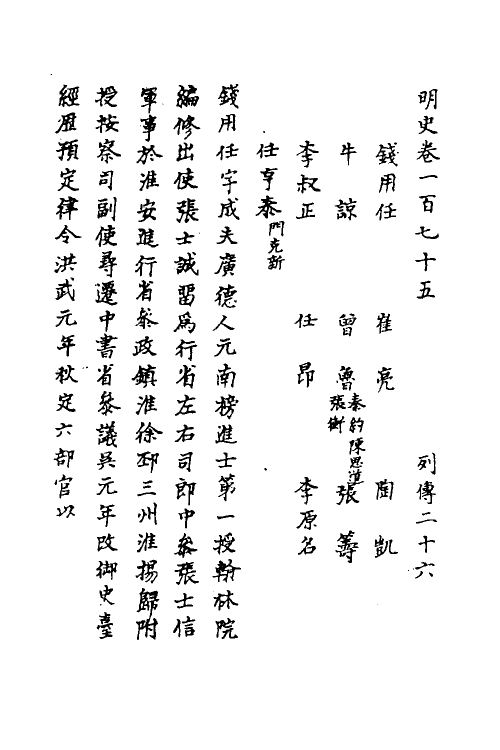 明史卷一百七十五　列傳二十六
錢用任　崔亮　陶凱
牛諒　曾魯秦約陳思道張衡　張籌
李叔正　任昂　李原名
任亨泰門克新
錢用任字成夫廣德人元南榜進士第一授翰林院
編修出使張士誠畱爲行省左右司郎中叅張士信
軍事於淮安進行省叅政鎮淮徐邳三州淮揚歸附
授按察司副使尋遷中書省叅議吳元年改御史臺
經歷預定律令洪武元年秋定六部官以